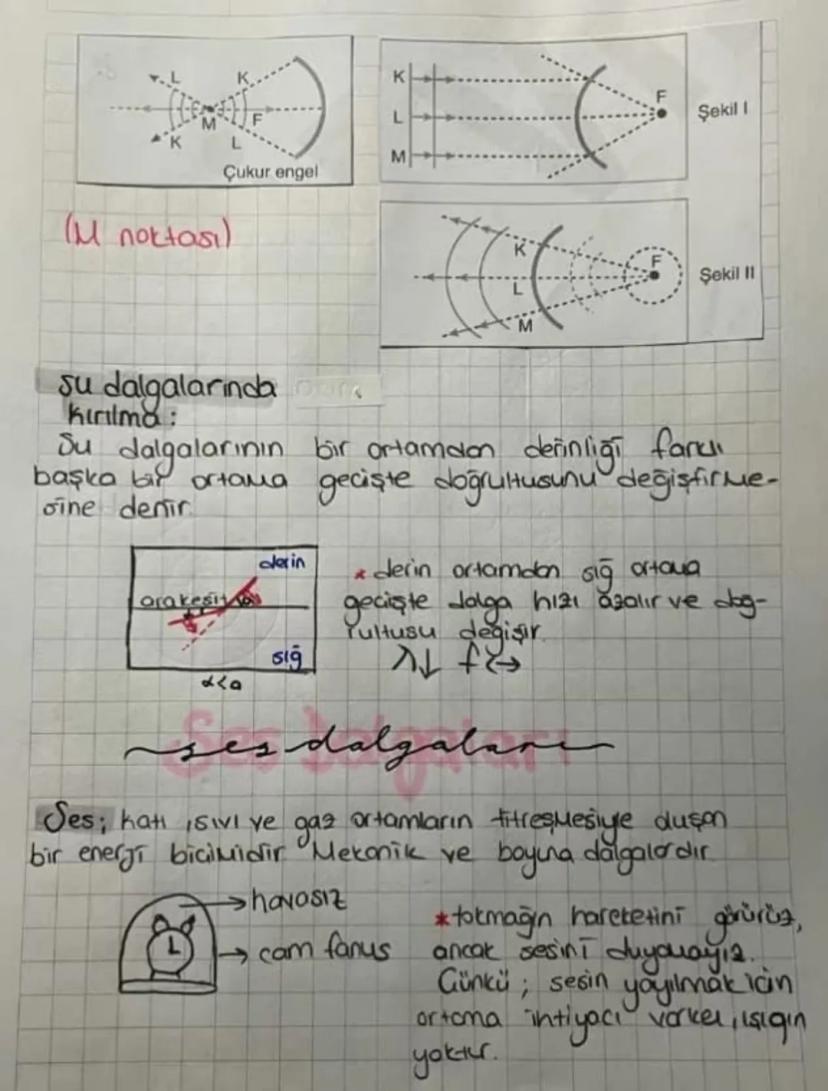 L K
M F
K L
Çukur engel
K
L
M
F
Şekil I
(M noktası)
K
L
M
F
Şekil II
su dalgalarında
kırılma:
Su dalgalarının bir ortamdan derinliği farklı
başka bir ortama geçişte doğrultusunu değiştirme-
sine denir.
derin
arakesit
sığ
α<a
* derin ortamdan sığ ortama
geçişte dalga hızı azalır ve doğ-
rultusu değişir.
λ↓ f→
ses dalgaları
Ses Dalgaları
Ses; katı, sıvı ve gaz ortamların titreşmesiyle oluşan
bir enerji biçimidir. Mekanik ve boyuna dalgalardır.
→ havasız
→ cam fanus
* tokmağın hareketini görürüz,
ancak sesini duyamayız.
Çünkü; sesin yayılmak için
ortama ihtiyacı varken, ışığın
yoktur.